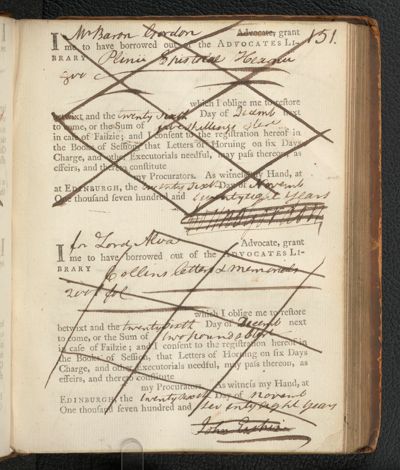 151.
I Mr Baron Gordon Advocate, grant
me to have borrowed out of the ADVOCATES LI-
BRARY Plinii Epistolae
8vo
which I oblige me to reſtore
betwixt and the twenty sixth Day of Decemb next
to come, or the Sum of five shillings
in caſe of Failzie; and I conſent to the regiſtration hereof in
the Books of Seſſion, that Letters of Horning on ſix Days
Charge, and other Executorials needful, may paſs thereon, as
effeirs, and thereto conſtitute
my Procurators. As witneſs my Hand, at
at EDINBURGH, the twenty sixth Day of Novemb
One thouſand ſeven hundred and seventy eight years
I for Lord Alva Advocate, grant
me to have borrowed out of the ADVOCATES LI-
BRARY Collens letters & memorials
2 vol fol
which I oblige me to reſtore
betwixt and the twenty sixth Day of Decemb next
to come, or the Sum of two pounds
in caſe of Failzie; and I conſent to the regiſtration hereof in
the Books of Seſſion, that Letters of Horning on ſix Days
Charge, and other Executorials needful, may paſs thereon, as
effeirs, and thereto conſtitute
my Procurators. As witneſs my Hand, at
EDINBURGH, the twenty sixth Day of novemb
One thouſand ſeven hundred and seventy eight years
John Erskine